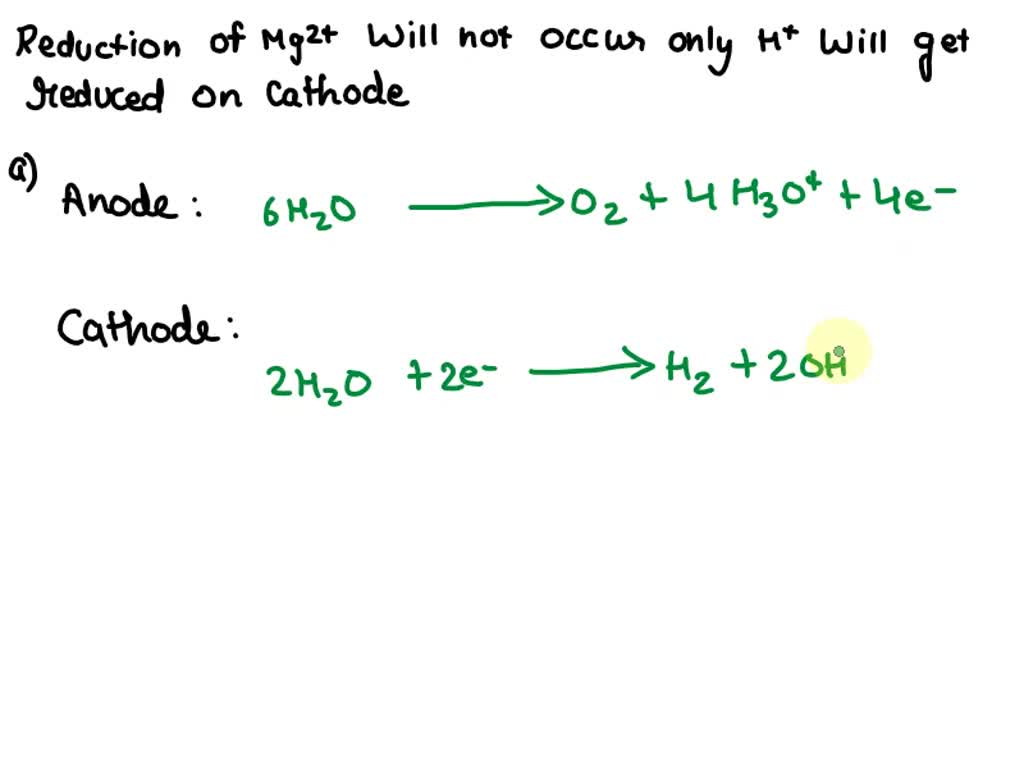 Reduction of Mg2+ will not occur only H+ will get
reduced on Cathode
a)
Anode: 6H2O ⟶ O2 + 4H3O+ + 4e-
Cathode:
2H2O + 2e- ⟶ H2 + 2OH